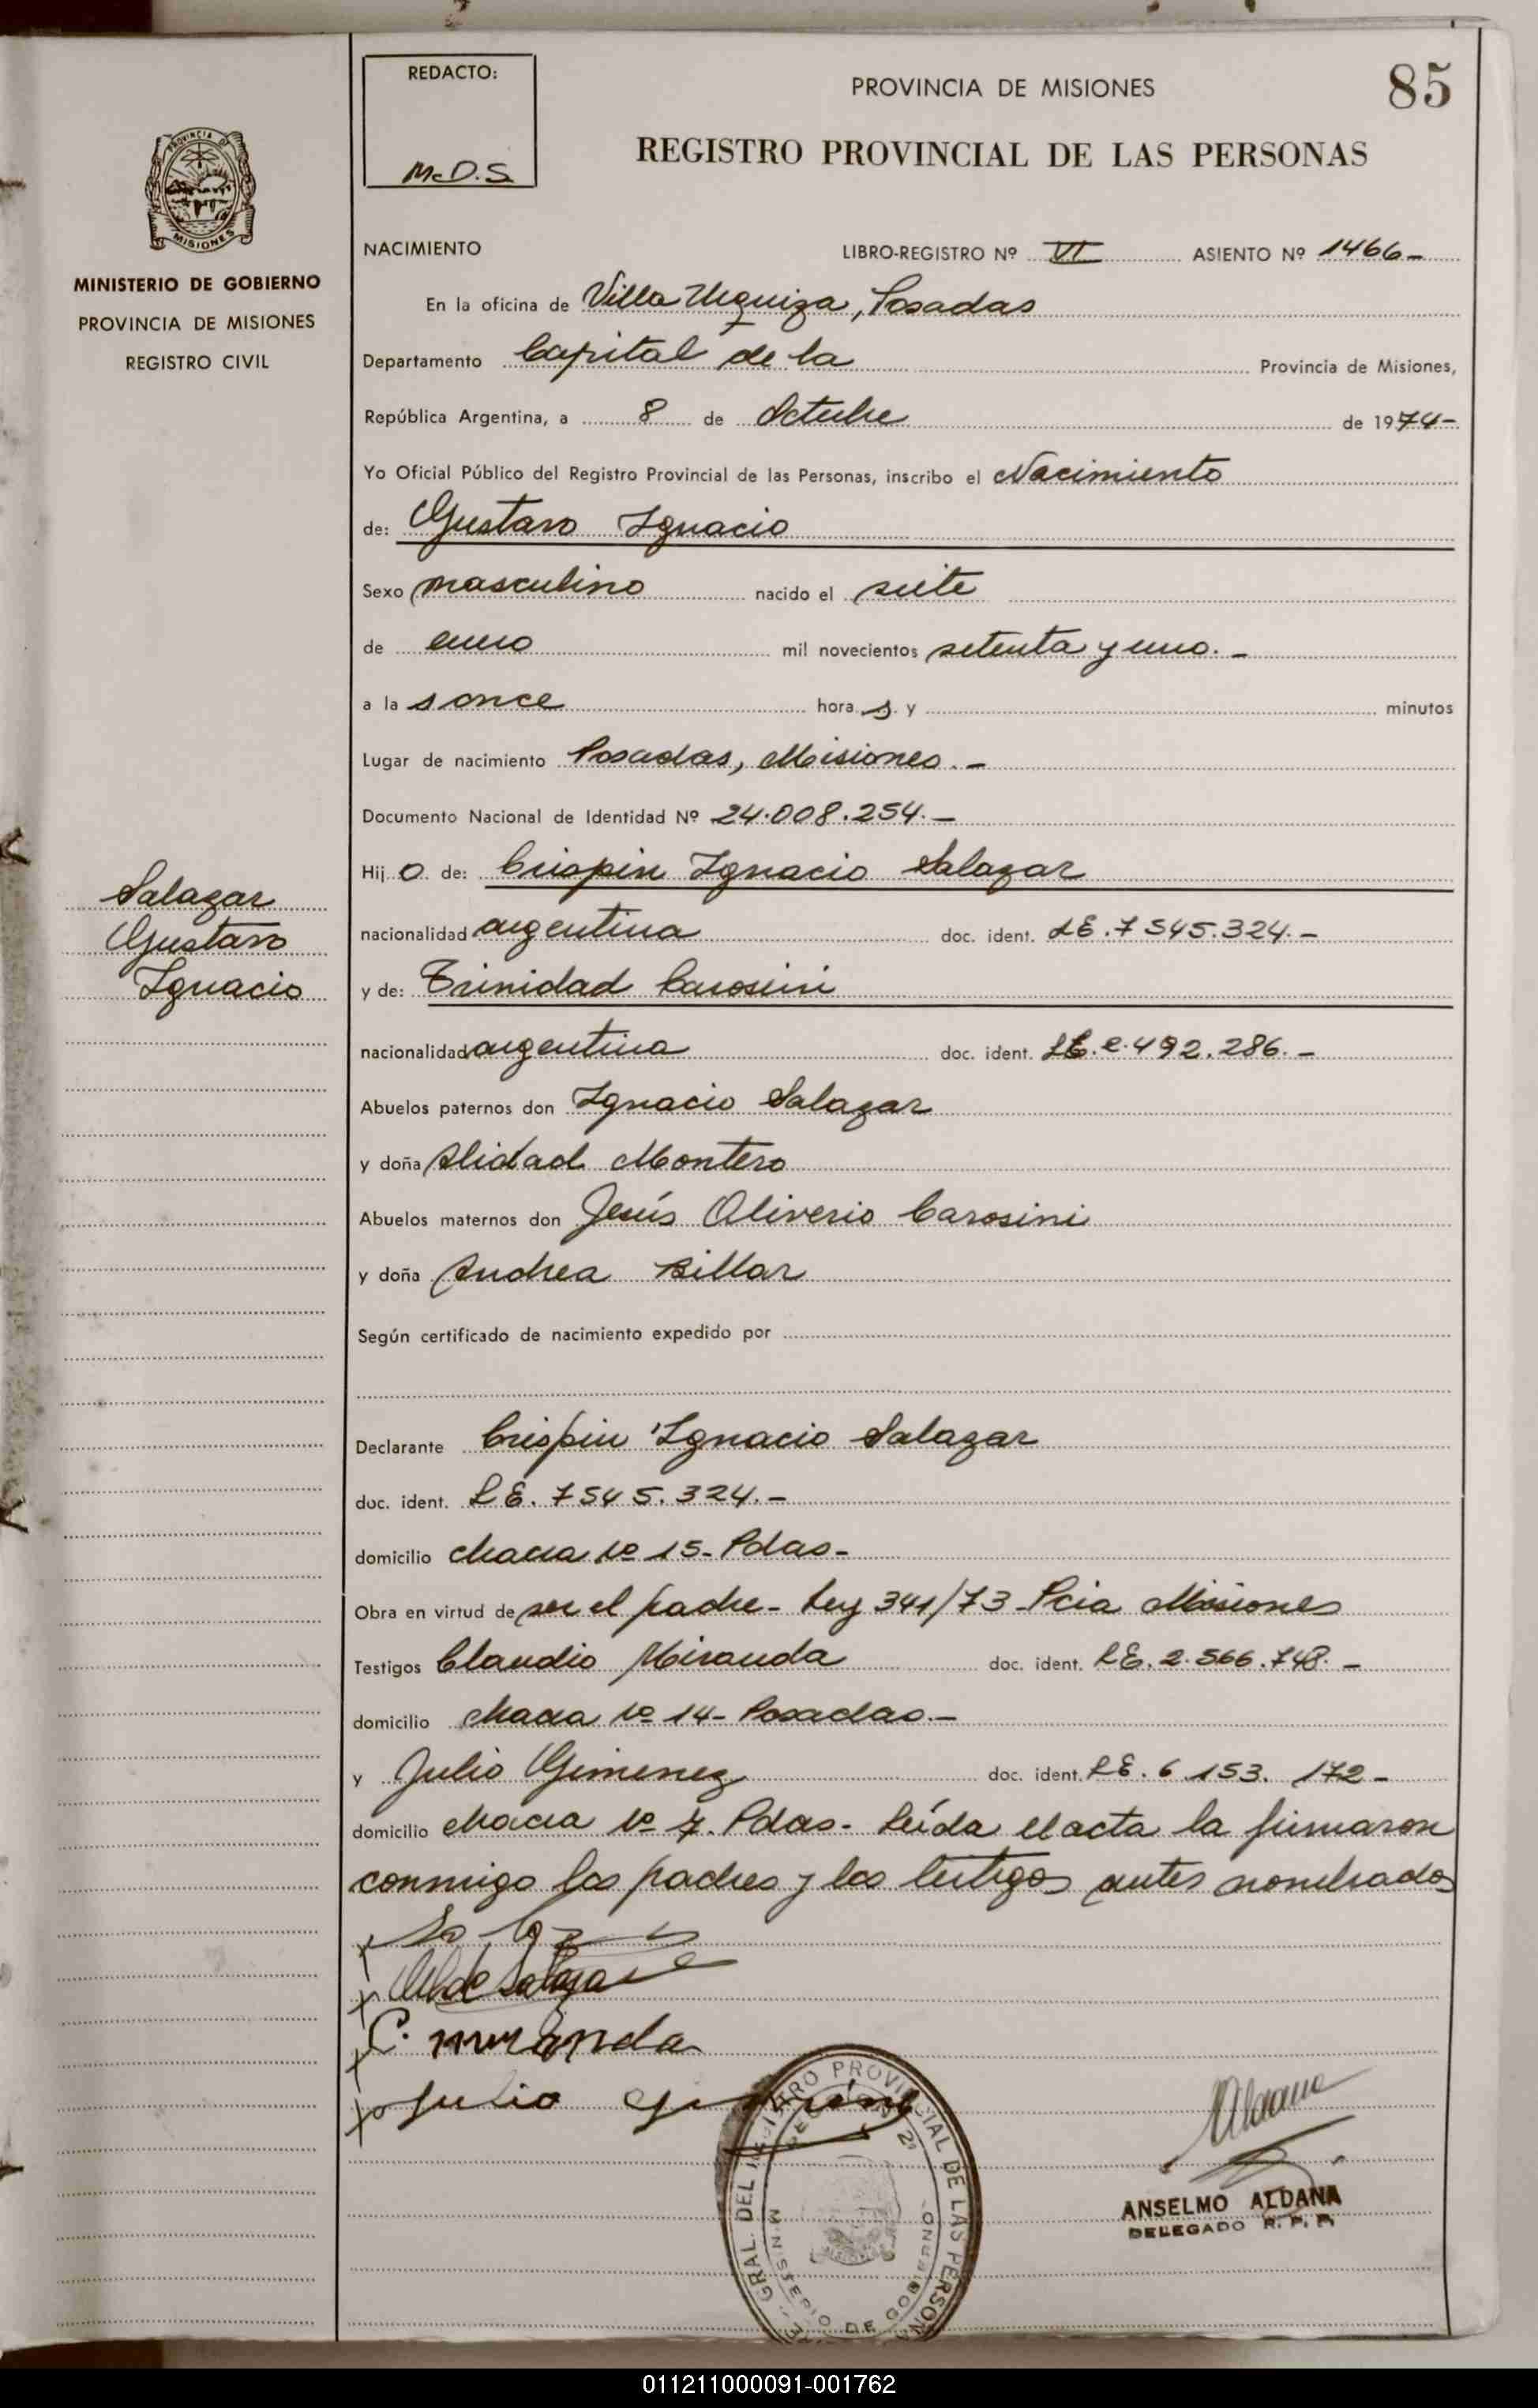 REDACTO:
M.D.S
PROVINCIA DE MISIONES
85
REGISTRO PROVINCIAL DE LAS PERSONAS
PROVINCIA D
MISIONES
MINISTERIO DE GOBIERNO
PROVINCIA DE MISIONES
REGISTRO CIVIL
NACIMIENTO
LIBRO-REGISTRO Nº VI ASIENTO Nº 1466-
En la oficina de Villa Urquiza, Posadas
Departamento Capital de la Provincia de Misiones,
República Argentina, a 8 de Octubre de 1974-
Yo Oficial Público del Registro Provincial de las Personas, inscribo el Nacimiento
de: Gustavo Ignacio
Sexo masculino nacido el siete
de enero mil novecientos setenta y uno.-
a la s once hora s y minutos
Lugar de nacimiento Posadas, Misiones.-
Documento Nacional de Identidad Nº 24.008.254.-
Hij o de: Crispin Ignacio Salazar
Salazar
Gustavo
Ignacio
nacionalidad argentina doc. ident. LE.7545.324.-
y de: Trinidad Carosini
nacionalidad argentina doc. ident. 492.286.-
Abuelos paternos don Ignacio Salazar
y doña Montero
Abuelos maternos don Jesús Oliverio Carosini
y doña Andrea Billar
Según certificado de nacimiento expedido por
Declarante Crispin Ignacio Salazar
doc. ident. LE. 7545.324.-
domicilio chacra Nº 15- Pdas-
Obra en virtud de ser el padre- Ley 341/73 Pcia Misiones
Testigos Claudio Miranda doc. ident. LE. 2.566.748.-
domicilio chacra Nº 14- Posadas.-
y Julio Gimenez doc. ident. LE. 6 153. 172-
domicilio chacra Nº 7. Pdas- Leída el acta la firmaron
conmigo los padres y los testigos antes nombrados
C. miranda
Julio
GRAL. DEL REGISTRO PROVINCIAL DE LAS PERSONA
MINISTERIO DE GOBIERNO
ANSELMO ALDANA
DELEGADO R. P. P.
011211000091-001762